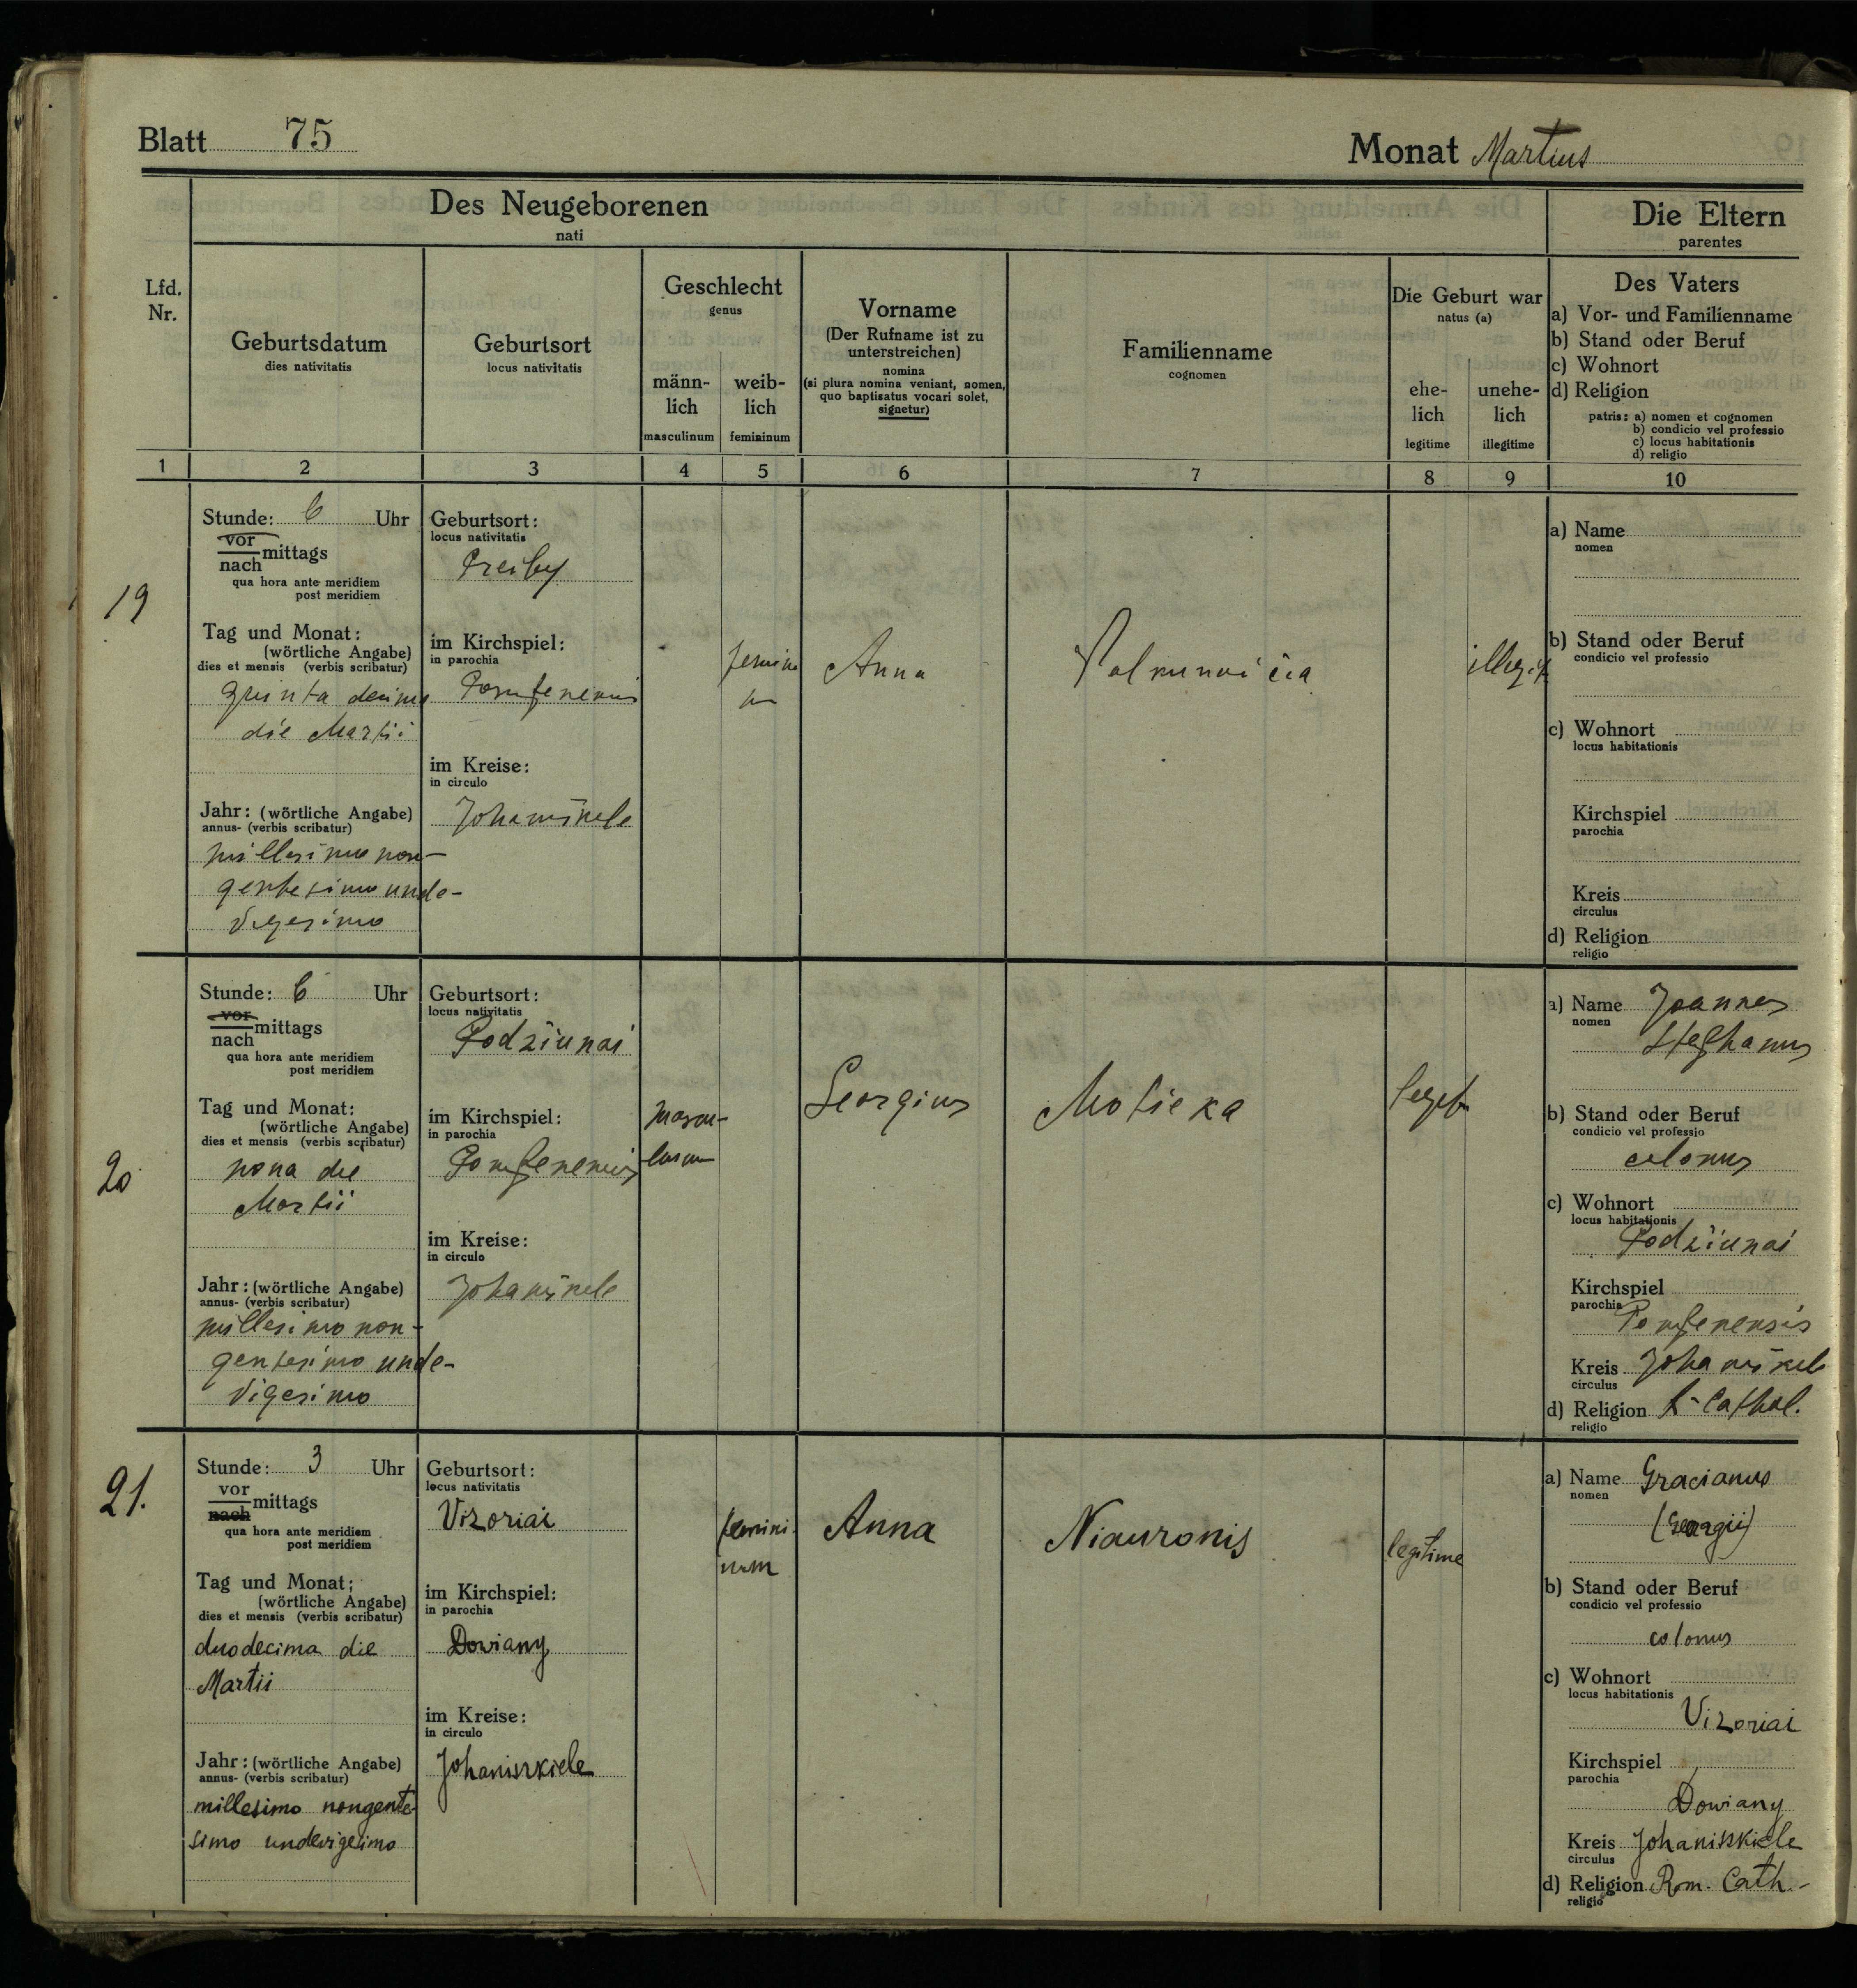 Blatt 75
Monat Martius
Des Neugeborenen
nati
Die Eltern
parentes
Lfd.
Nr.
Geburtsdatum
dies nativitatis
Geburtsort
locus nativitatis
Geschlecht
genus
männ-
lich
masculinum
weib-
lich
femininum
Vorname
(Der Rufname ist zu
unterstreichen)
nomina
(si plura nomina veniant, nomen,
quo baptisatus vocari solet,
signetur)
Familienname
cognomen
Die Geburt war
natus (a)
ehe-
lich
legitime
unehe-
lich
illegitime
Des Vaters
a) Vor- und Familienname
b) Stand oder Beruf
c) Wohnort
d) Religion
patris: a) nomen et cognomen
b) condicio vel professio
c) locus habitationis
d) religio
1 2 3 4 5 6 7 8 9 10
19
Stunde: 6 Uhr
vor
mittags
nach
qua hora ante meridiem
post meridiem
Tag und Monat:
(wörtliche Angabe)
dies et mensis (verbis scribatur)
quinta decima
die Martii
Jahr: (wörtliche Angabe)
annus- (verbis scribatur)
millesimo non-
gentesimo unde-
vigesimo
Geburtsort:
locus nativitatis
im Kirchspiel:
in parochia
im Kreise:
in circulo
Johaniškele
Anna
illegit
a) Name
nomen
b) Stand oder Beruf
condicio vel professio
c) Wohnort
locus habitationis
Kirchspiel
parochia
Kreis
circulus
d) Religion
religio
20
Stunde: 6 Uhr
vor
mittags
nach
qua hora ante meridiem
post meridiem
Tag und Monat:
(wörtliche Angabe)
dies et mensis (verbis scribatur)
nona die
Martii
Jahr: (wörtliche Angabe)
annus- (verbis scribatur)
millesimo non-
gentesimo unde-
vigesimo
Geburtsort:
locus nativitatis
Podžiunai
im Kirchspiel:
in parochia
im Kreise:
in circulo
Johaniškele
mascu-
linum
Georgius
Motieka
legit
a) Name Joannes
nomen
Stephanus
b) Stand oder Beruf
condicio vel professio
colonus
c) Wohnort
locus habitationis
Podžiunai
Kirchspiel
parochia
Pompenensis
Kreis Johaniškele
circulus
d) Religion R-Cathol.
religio
21.
Stunde: 3 Uhr
vor
mittags
nach
qua hora ante meridiem
post meridiem
Tag und Monat:
(wörtliche Angabe)
dies et mensis (verbis scribatur)
duodecima die
Martii
Jahr: (wörtliche Angabe)
annus- (verbis scribatur)
millesimo nongente-
simo undevigesimo
Geburtsort:
locus nativitatis
Vizoriai
im Kirchspiel:
in parochia
Dowiany
im Kreise:
in circulo
Johaniszkiele
femini-
num
Anna
Niauronis
legitime
a) Name Gracianus
nomen
(Georgii)
b) Stand oder Beruf
condicio vel professio
colonus
c) Wohnort
locus habitationis
Vizoriai
Kirchspiel
parochia
Dowiany
Kreis Johaniszkiele
circulus
d) Religion Rom. Cath-
religio